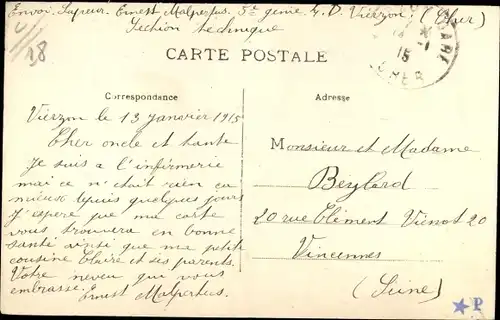 Envoi. Sapeur. Ernest Malpertus. 5e genie G. D Vierzon. (Cher)
Section technique
CARTE POSTALE
Correspondance
Adresse
Vierzon le 13 janvier 1915
Cher oncle et tante
Je suis a l'infirmerie
mai ce n'était rien ça
mieux depuis quelques jours
J'espere que ma carte
vous trouvera en bonne
santé ainsi que ma petite
cousine Claire et ses parents.
Votre neveu qui vous
embrasse. Ernest Malpertus.
Monsieur et Madame
Beylard
20 rue Clément Viénot 20
Vincennes
(Seine)
15
CHER
P